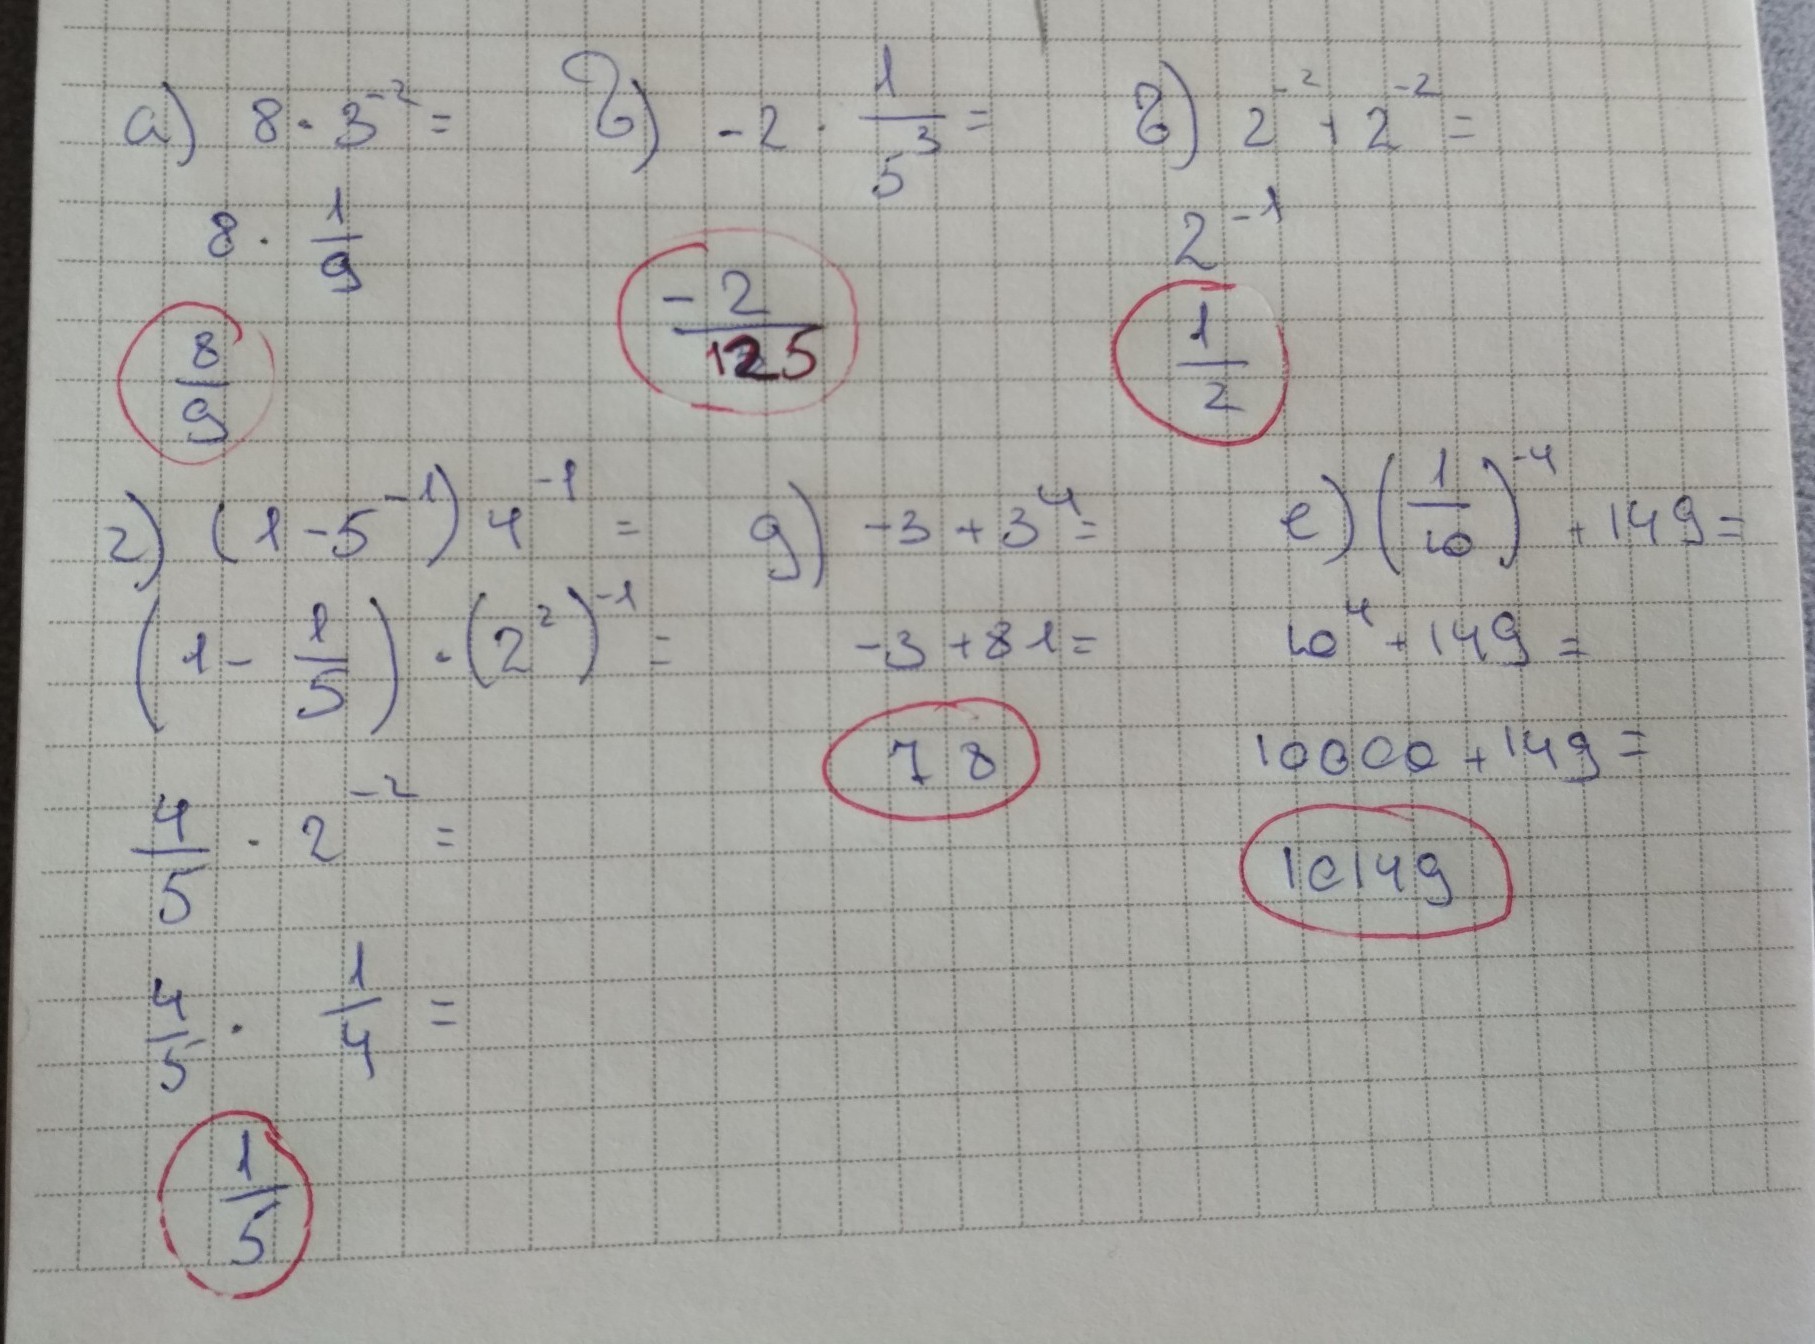 а) 8 · 3⁻² =
8 · 1/9
8/9
б) -2 · 1/5³ =
-2/125
в) 2⁻² + 2⁻² =
2⁻¹
1/2
г) (1 - 5⁻¹) 4⁻¹ =
(1 - 1/5) · (2²)⁻¹ =
4/5 · 2⁻² =
4/5 · 1/4 =
1/5
g) -3 + 3⁴ =
-3 + 81 =
78
е) (1/10)⁻⁴ + 149 =
10⁴ + 149 =
10000 + 149 =
10149